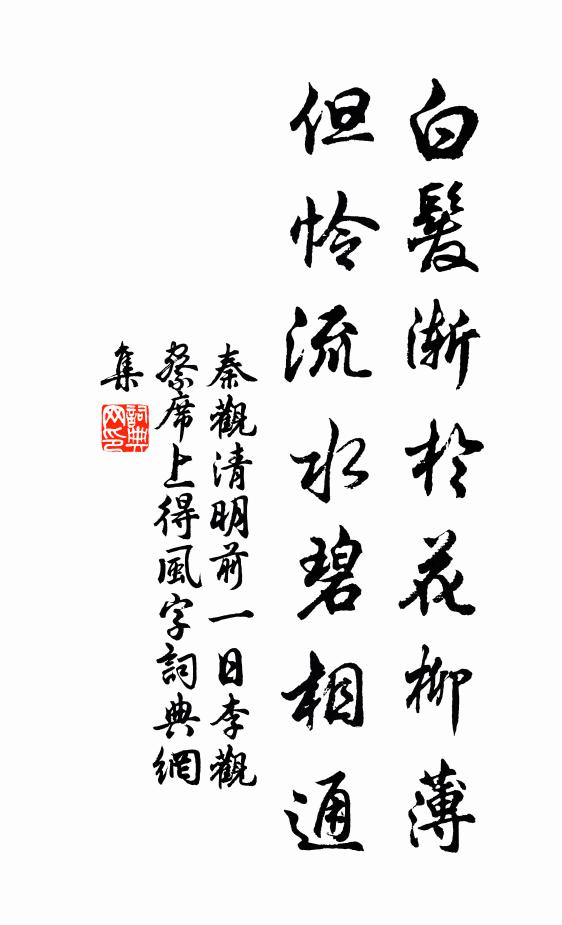 白髮漸於花柳薄
但怜流水碧相通
秦觀清明前一日李觀
察席上得風字詞典網
集
詞典
网印